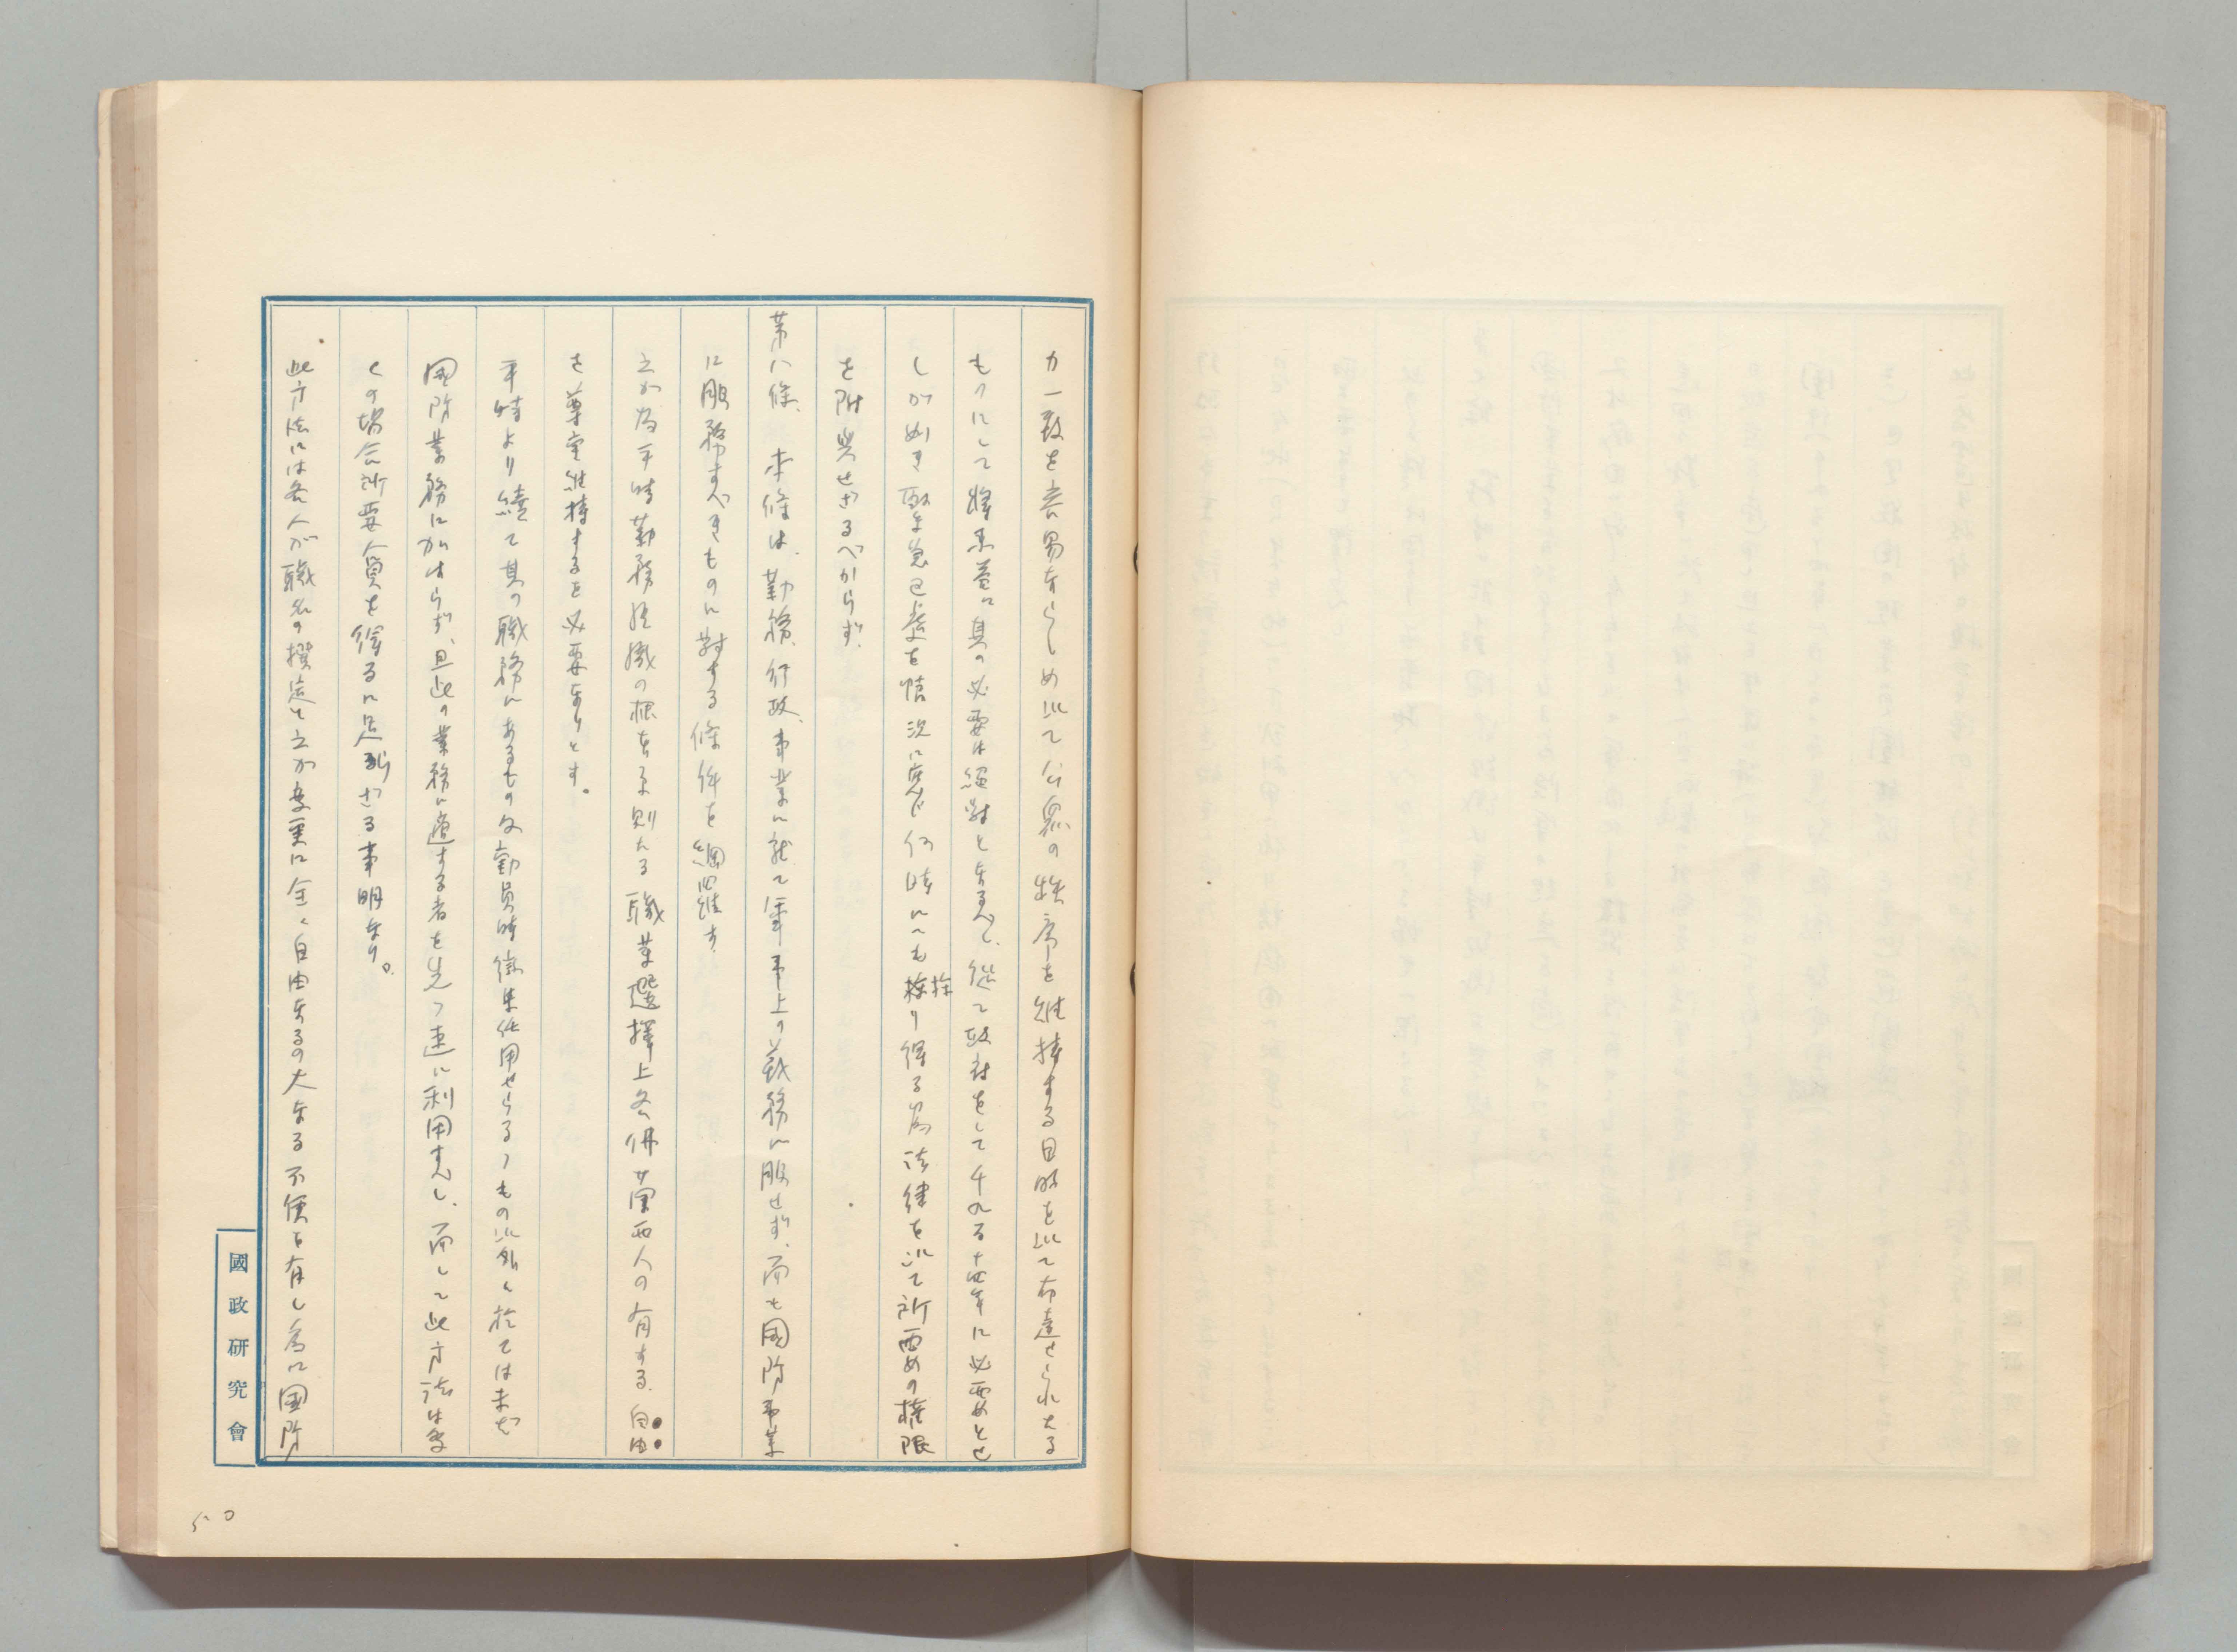 力一致を容易ならしめ以て公衆の秩序を維持する目的を以て布達せられたる
ものにして将来益々其の必要は絶対となるべく、従て政府をして千九百十四年に必要とせ
しが如き緊急已養を情況に応じ何時にても採り得る為法律を以て所要の権限
を附與せざるべからず.
第八條、本條は、勤務、行政、事業に就て軍事上の義務に服せず、而も国防事業
に服務すべきものに対する條件を網羅す.
之が為平時勤務組織の根本原則たる職業選擇上各佛蘭西人の有する自由
を尊重維持するを必要なりとす。
平時より続て其の職務にあるもの及動員時徴集任用せらるゝもの以外に於ては未だ
国防業務に加はらず、且此の業務に適する者を先づ速に利用すべし、而して此方法は多
くの場合所要人員を得るに足らざる事明なり。
此方法には各人が職名の撰定と之が変更に全く自由なるの大なる不便を有し為に国防
國政研究會
50